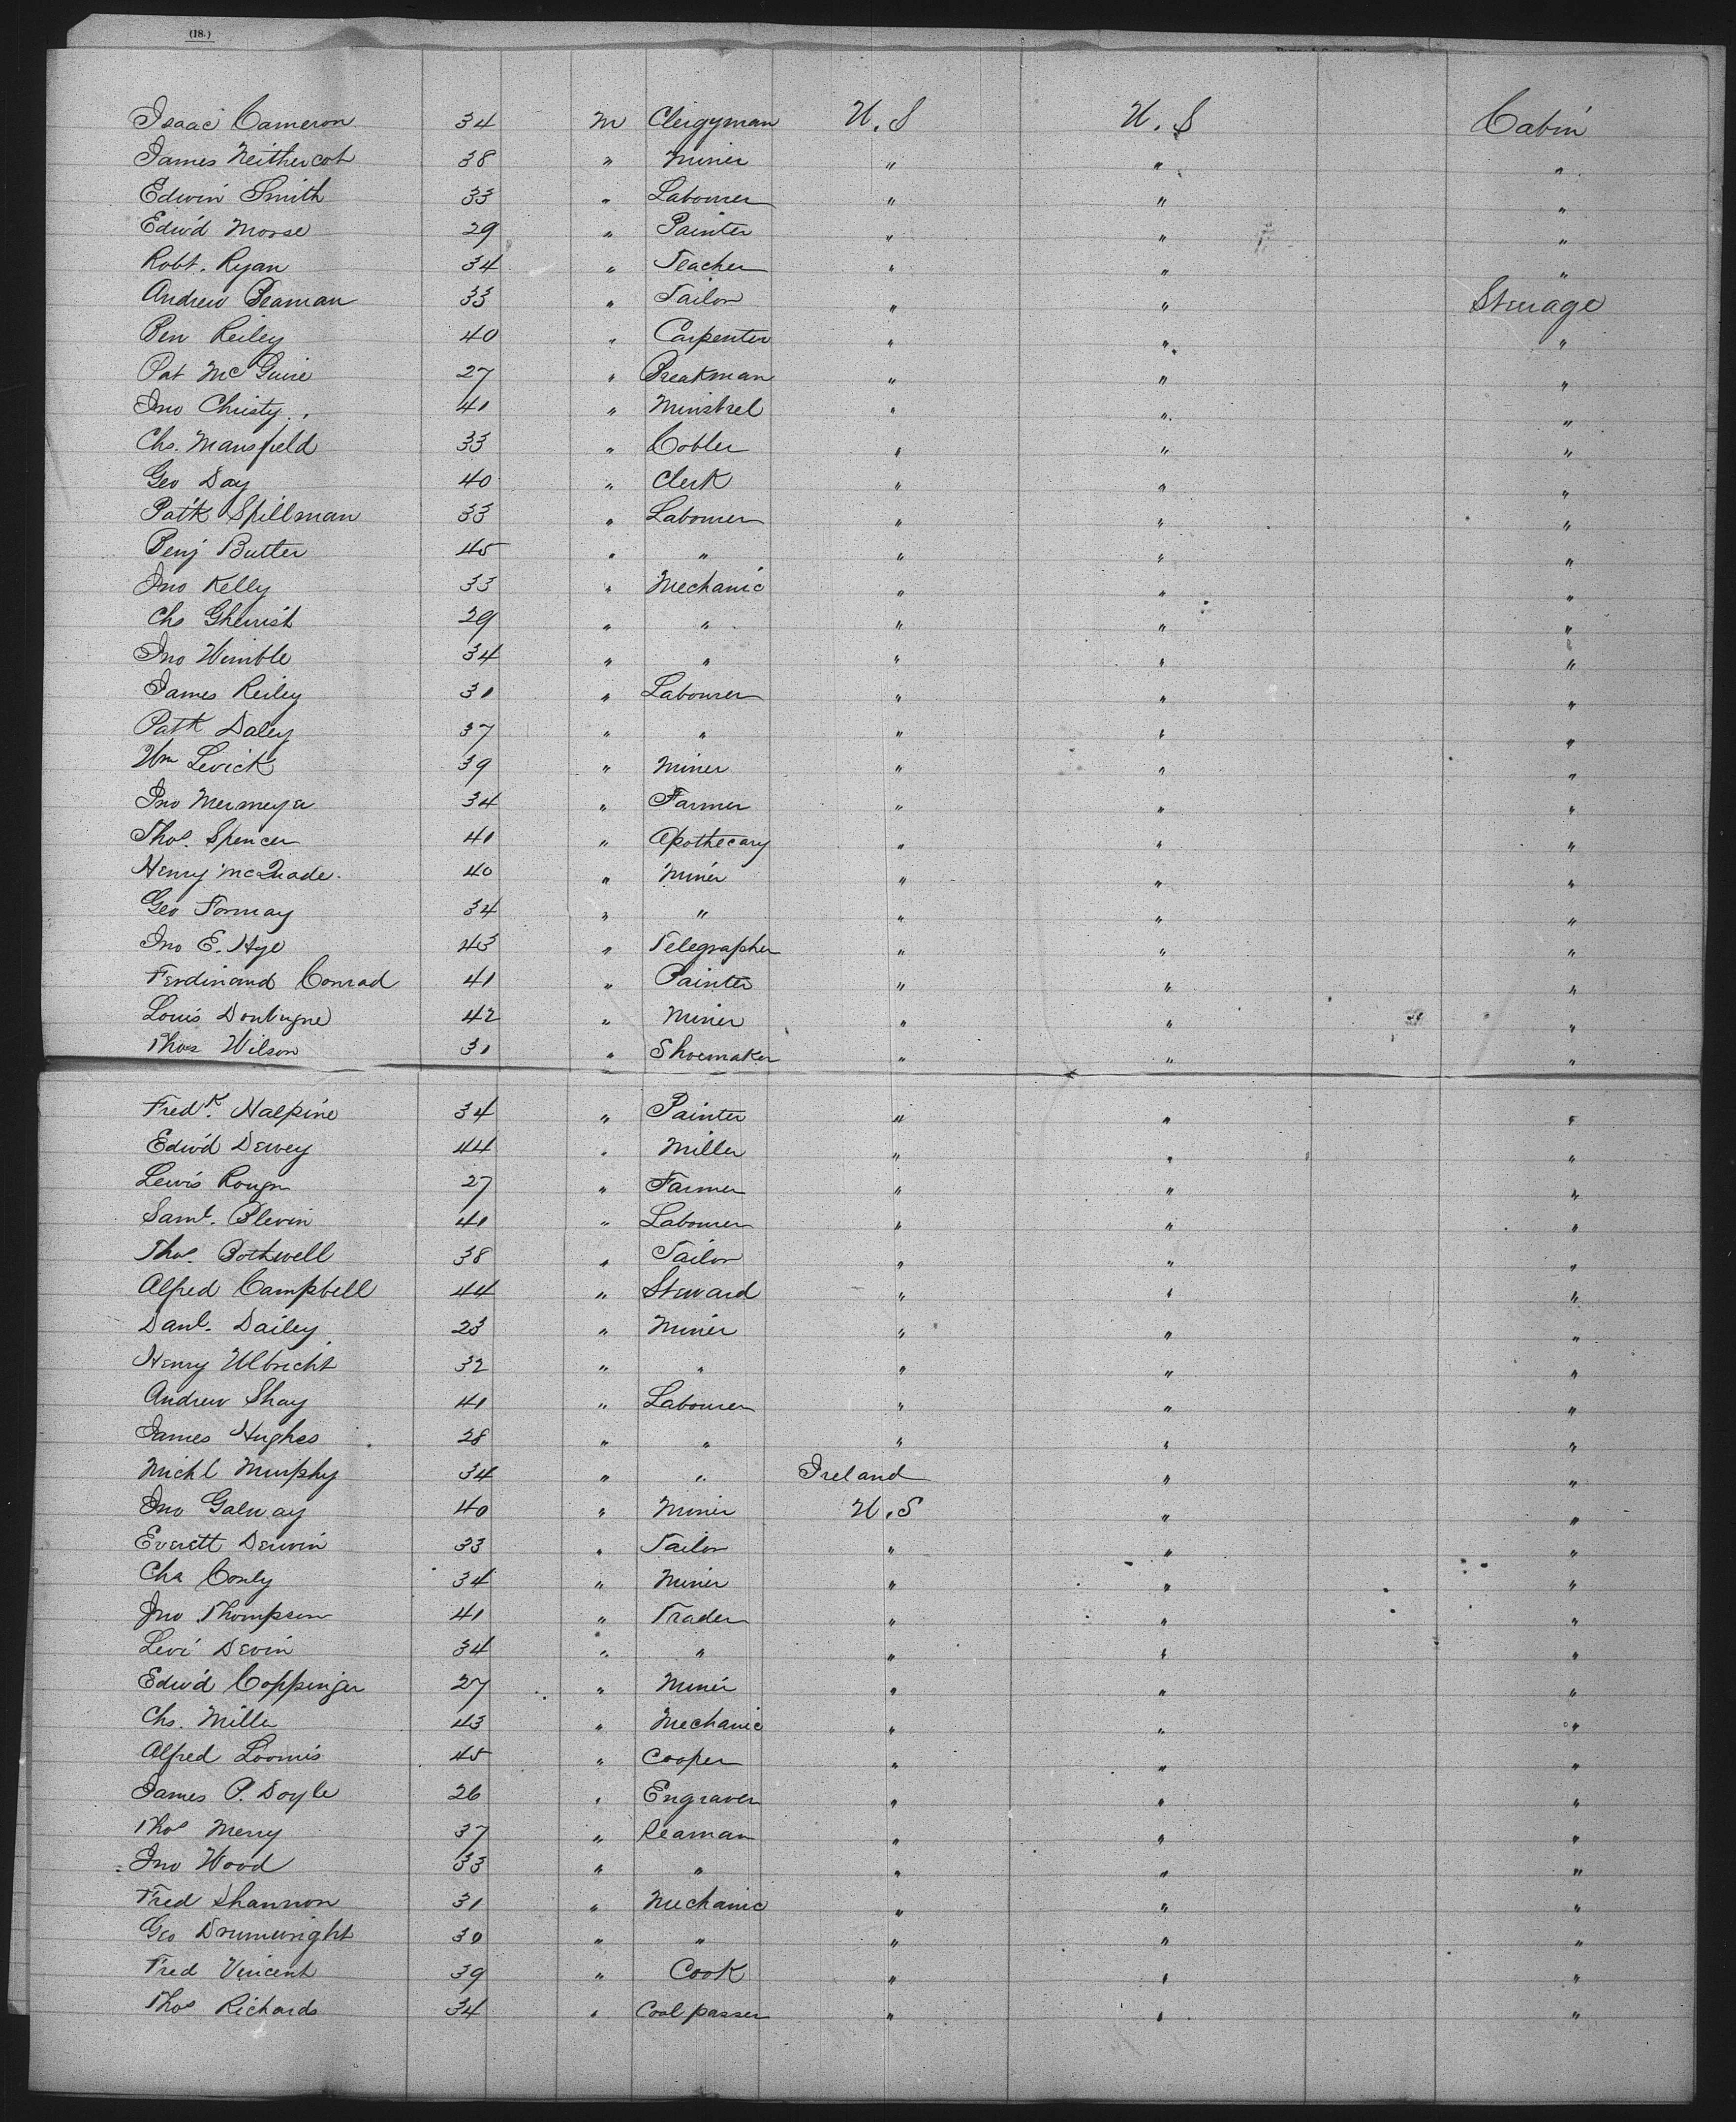 (18.)
Isaac Cameron 34 M Clergyman U.S U.S Cabin
James Neithercot 38 " Miner " " "
Edwin Smith 33 " Labourer " " "
Edw'd Morse 29 " Painter " " "
Robt. Ryan 34 " Teacher " " "
Andrew Beaman 33 " Tailor " " Steerage
Ben Reiley 40 " Carpenter " " "
Pat McGuire 27 " Breakman " " "
Jno Christy 41 " Minstrel " " "
Chs. Mansfield 33 " Cobler " " "
Geo Day 40 " Clerk " " "
Pat'k Spillman 33 " Labourer " " "
Benj Butler 45 " " " " "
Jno Kelly 33 " Mechanic " " "
Chs 29 " " " " "
Jno Wimble 34 " " " " "
James Reiley 31 " Labourer " " "
Patk Daley 37 " " " " "
Wm Levick 39 " Miner " " "
Jno Mermeyer 34 " Farmer " " "
Thos. Spencer 41 " Apothecary " " "
Henry McQuade 40 " Miner " " "
Geo Formay 34 " " " " "
Jno E. Hye 43 " Telegrapher " " "
Ferdinand Conrad 41 " Painter " " "
Louis 42 " Miner " " "
Thos Wilson 31 " Shoemaker " " "
Fredk. Halpine 34 " Painter " " "
Edw'd Dewey 44 " Miller " " "
Lewis 27 " Farmer " " "
Saml. Blevin 41 " Labourer " " "
Thos. Bothwell 38 " Tailor " " "
Alfred Campbell 44 " Steward " " "
Danl. Dailey 23 " Miner " " "
Henry Ulbricht 32 " " " " "
Andrew Shay 41 " Labourer " " "
James Hughes 28 " " " " "
Michl Murphy 34 " " Ireland " "
Jno Galway 40 " Miner U.S " "
Everett Derwin 33 " Tailor " " "
Cha Conly 34 " Miner " " "
Jno Thompson 41 " Trader " " "
Levi Devin 34 " " " " "
Edw'd Coppinger 27 " Miner " " "
Chs. Miller 43 " Mechanic " " "
Alfred Loomis 45 " Cooper " " "
James P. Doyle 26 " Engraver " " "
Thos Merry 37 " Seaman " " "
Jno Wood 33 " " " " "
Fred Shannon 31 " Mechanic " " "
Geo Drumwright 30 " " " " "
Fred Vincent 39 " Cook " " "
Thos Richards 34 " Coal passer " " "